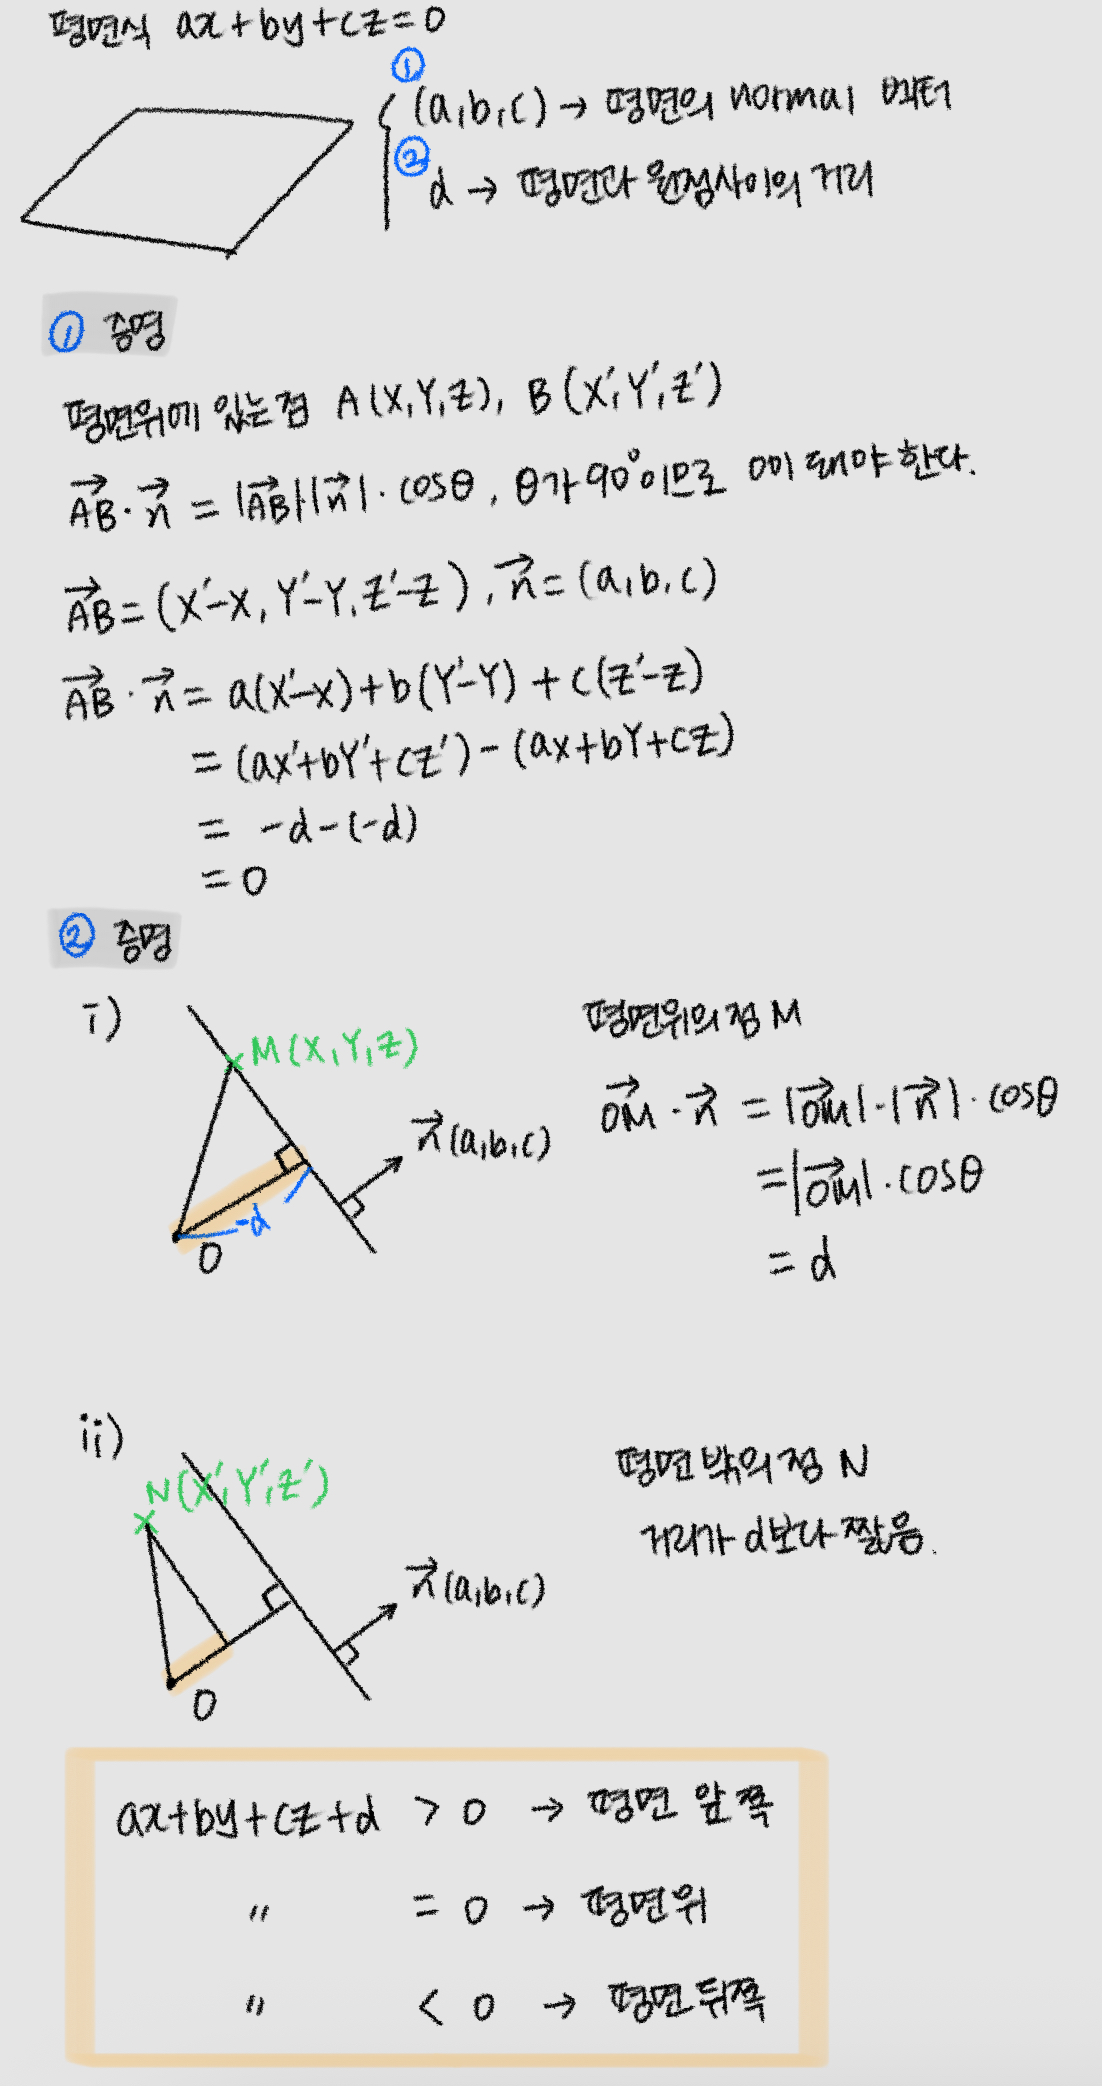 평면식 ax+by+cz=0
① (a,b,c) → 평면의 normal 벡터
② d → 평면과 원점사이의 거리
① 증명
평면위에 있는 점 A(X,Y,Z), B(X',Y',Z')
AB·n = |AB|·|n|·cosθ, θ가 90°이므로 0이 돼야 한다.
AB=(X'-X, Y'-Y, Z'-Z), n=(a,b,c)
AB·n = a(X'-X)+b(Y'-Y)+c(Z'-Z)
= (aX'+bY'+cZ')-(aX+bY+cZ)
= -d-(-d)
= 0
② 증명
i)
M(X,Y,Z)
n(a,b,c)
-d
O
평면위의 점 M
OM·n = |OM|·|n|·cosθ
= |OM|·cosθ
= d
ii)
N(X',Y',Z')
n(a,b,c)
O
평면 밖의 점 N
거리가 d보다 짧음.
ax+by+cz+d > 0 → 평면 앞쪽
" = 0 → 평면위
" < 0 → 평면 뒤쪽